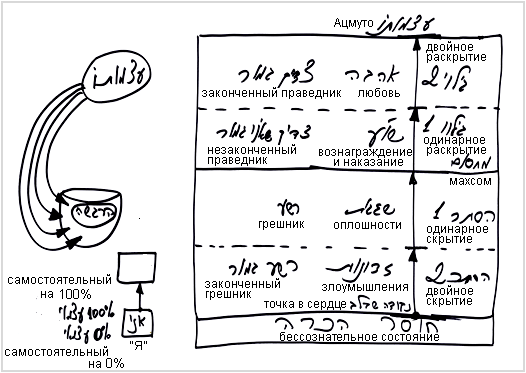 Ацмуто עצמותו
двойное
раскрытие
גלוי 2
צדיק גמור
אהבה
законченный праведник
любовь
צדיק שאינו גמור
שו"ע
גלוי 1
незаконченный
праведник
вознаграждение
и наказание
одинарное
раскрытие
מחסום
махсом
רשע
שגגות
הסתר 1
грешник
оплошности
одинарное
скрытие
רשע גמור
זדונות
הסתר 2
законченный
грешник
злоумышления
двойное
скрытие
точка в сердце
נקודה שבלב
חוסר הכרה
бессознательное состояние
עצמותו
הרגשה
самостоятельный
на 100%
עצמאי 100%
עצמאי 0%
אני
"Я"
самостоятельный
на 0%